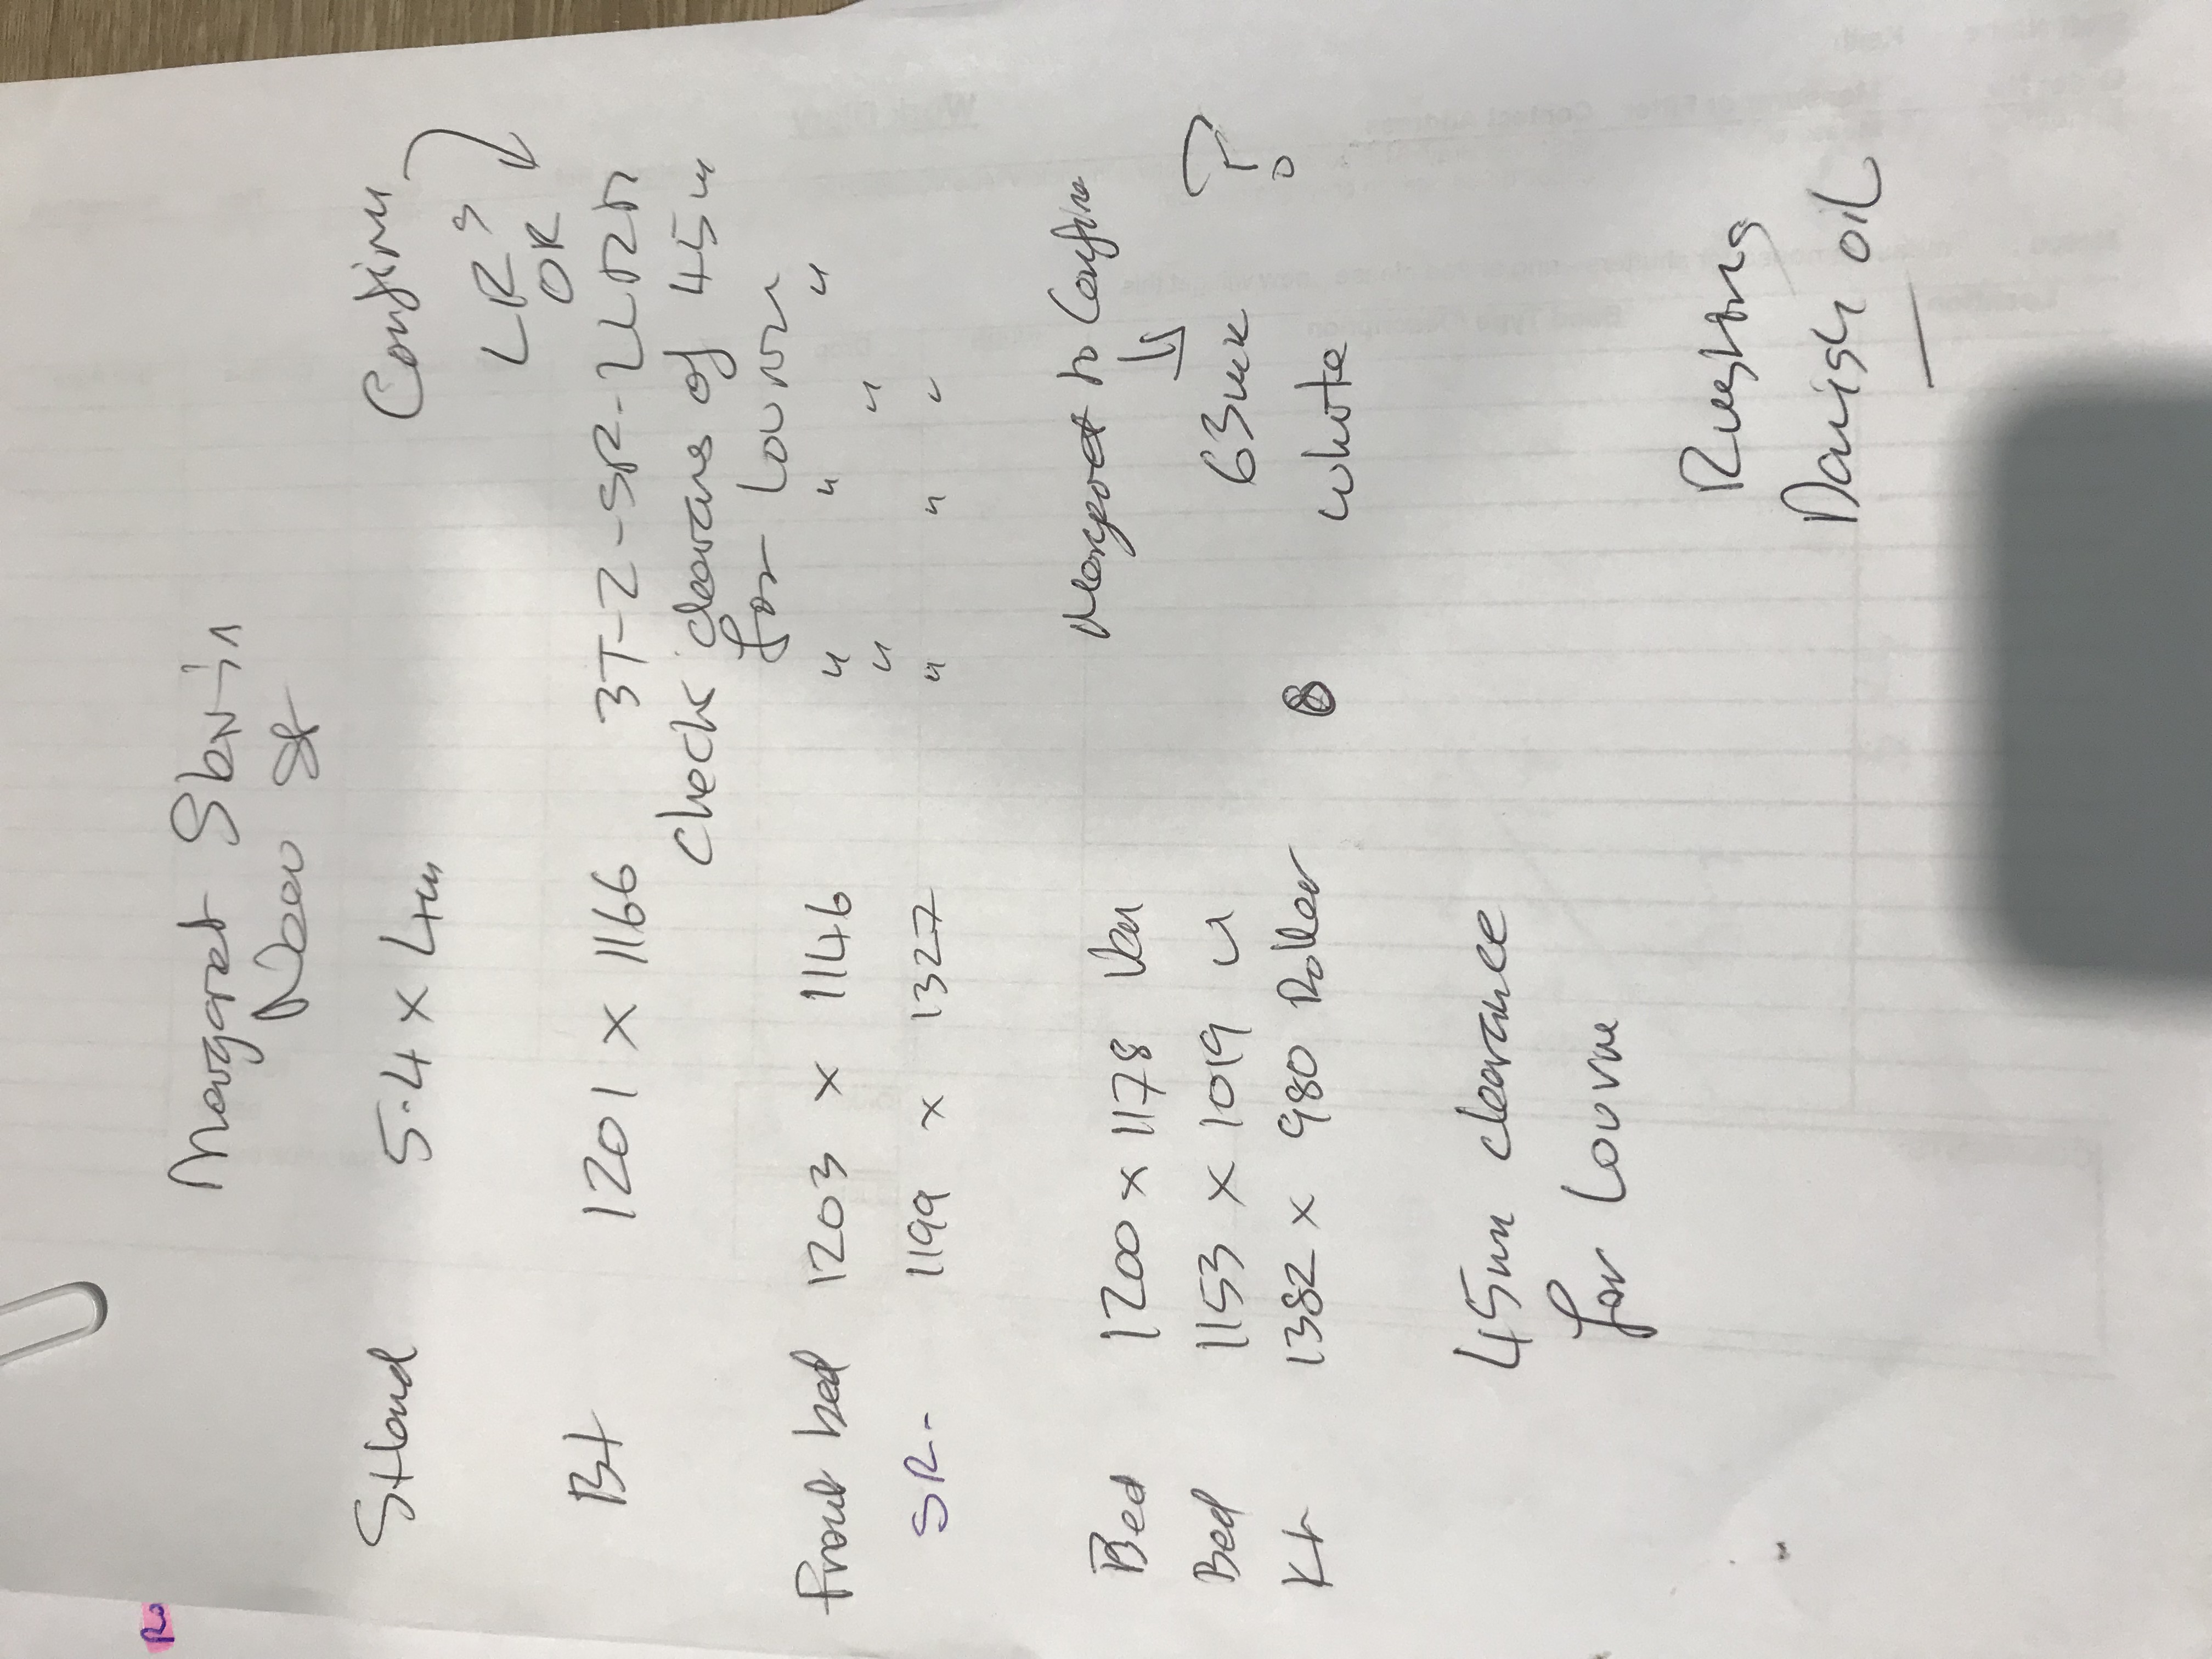 Margaret
Stland 5.4 x 4m Confirm
LR?
OK
Bt 1201 x 1166 3T-Z-SR-
Check clearans of 45m
for Louvre
Front bed 1203 x 1146 " " "
" "
SR- 1199 x 1327 " " "
Bed 1200 x 1178 Ven Margaret to Confirm
Bed 1153 x 1019 " 63mm ?
Kt 1382 x 980 Roller white
45mm clearance
for Louvre
Rustins
Danish oil